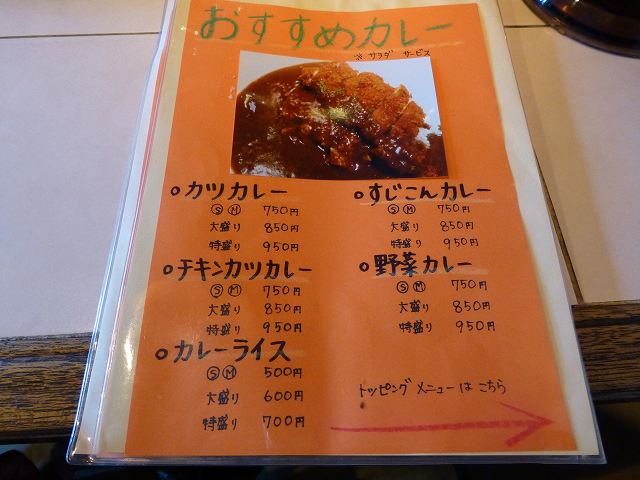 おすすめカレー
※サラダ サービス
○カツカレー
Ⓢ Ⓜ 750円
大盛り 850円
特盛り 950円
○チキンカツカレー
Ⓢ Ⓜ 750円
大盛り 850円
特盛り 950円
○カレーライス
Ⓢ Ⓜ 500円
大盛り 600円
特盛り 700円
○すじこんカレー
Ⓢ Ⓜ 750円
大盛り 850円
特盛り 950円
○野菜カレー
Ⓢ Ⓜ 750円
大盛り 850円
特盛り 950円
トッピング メニューは こちら